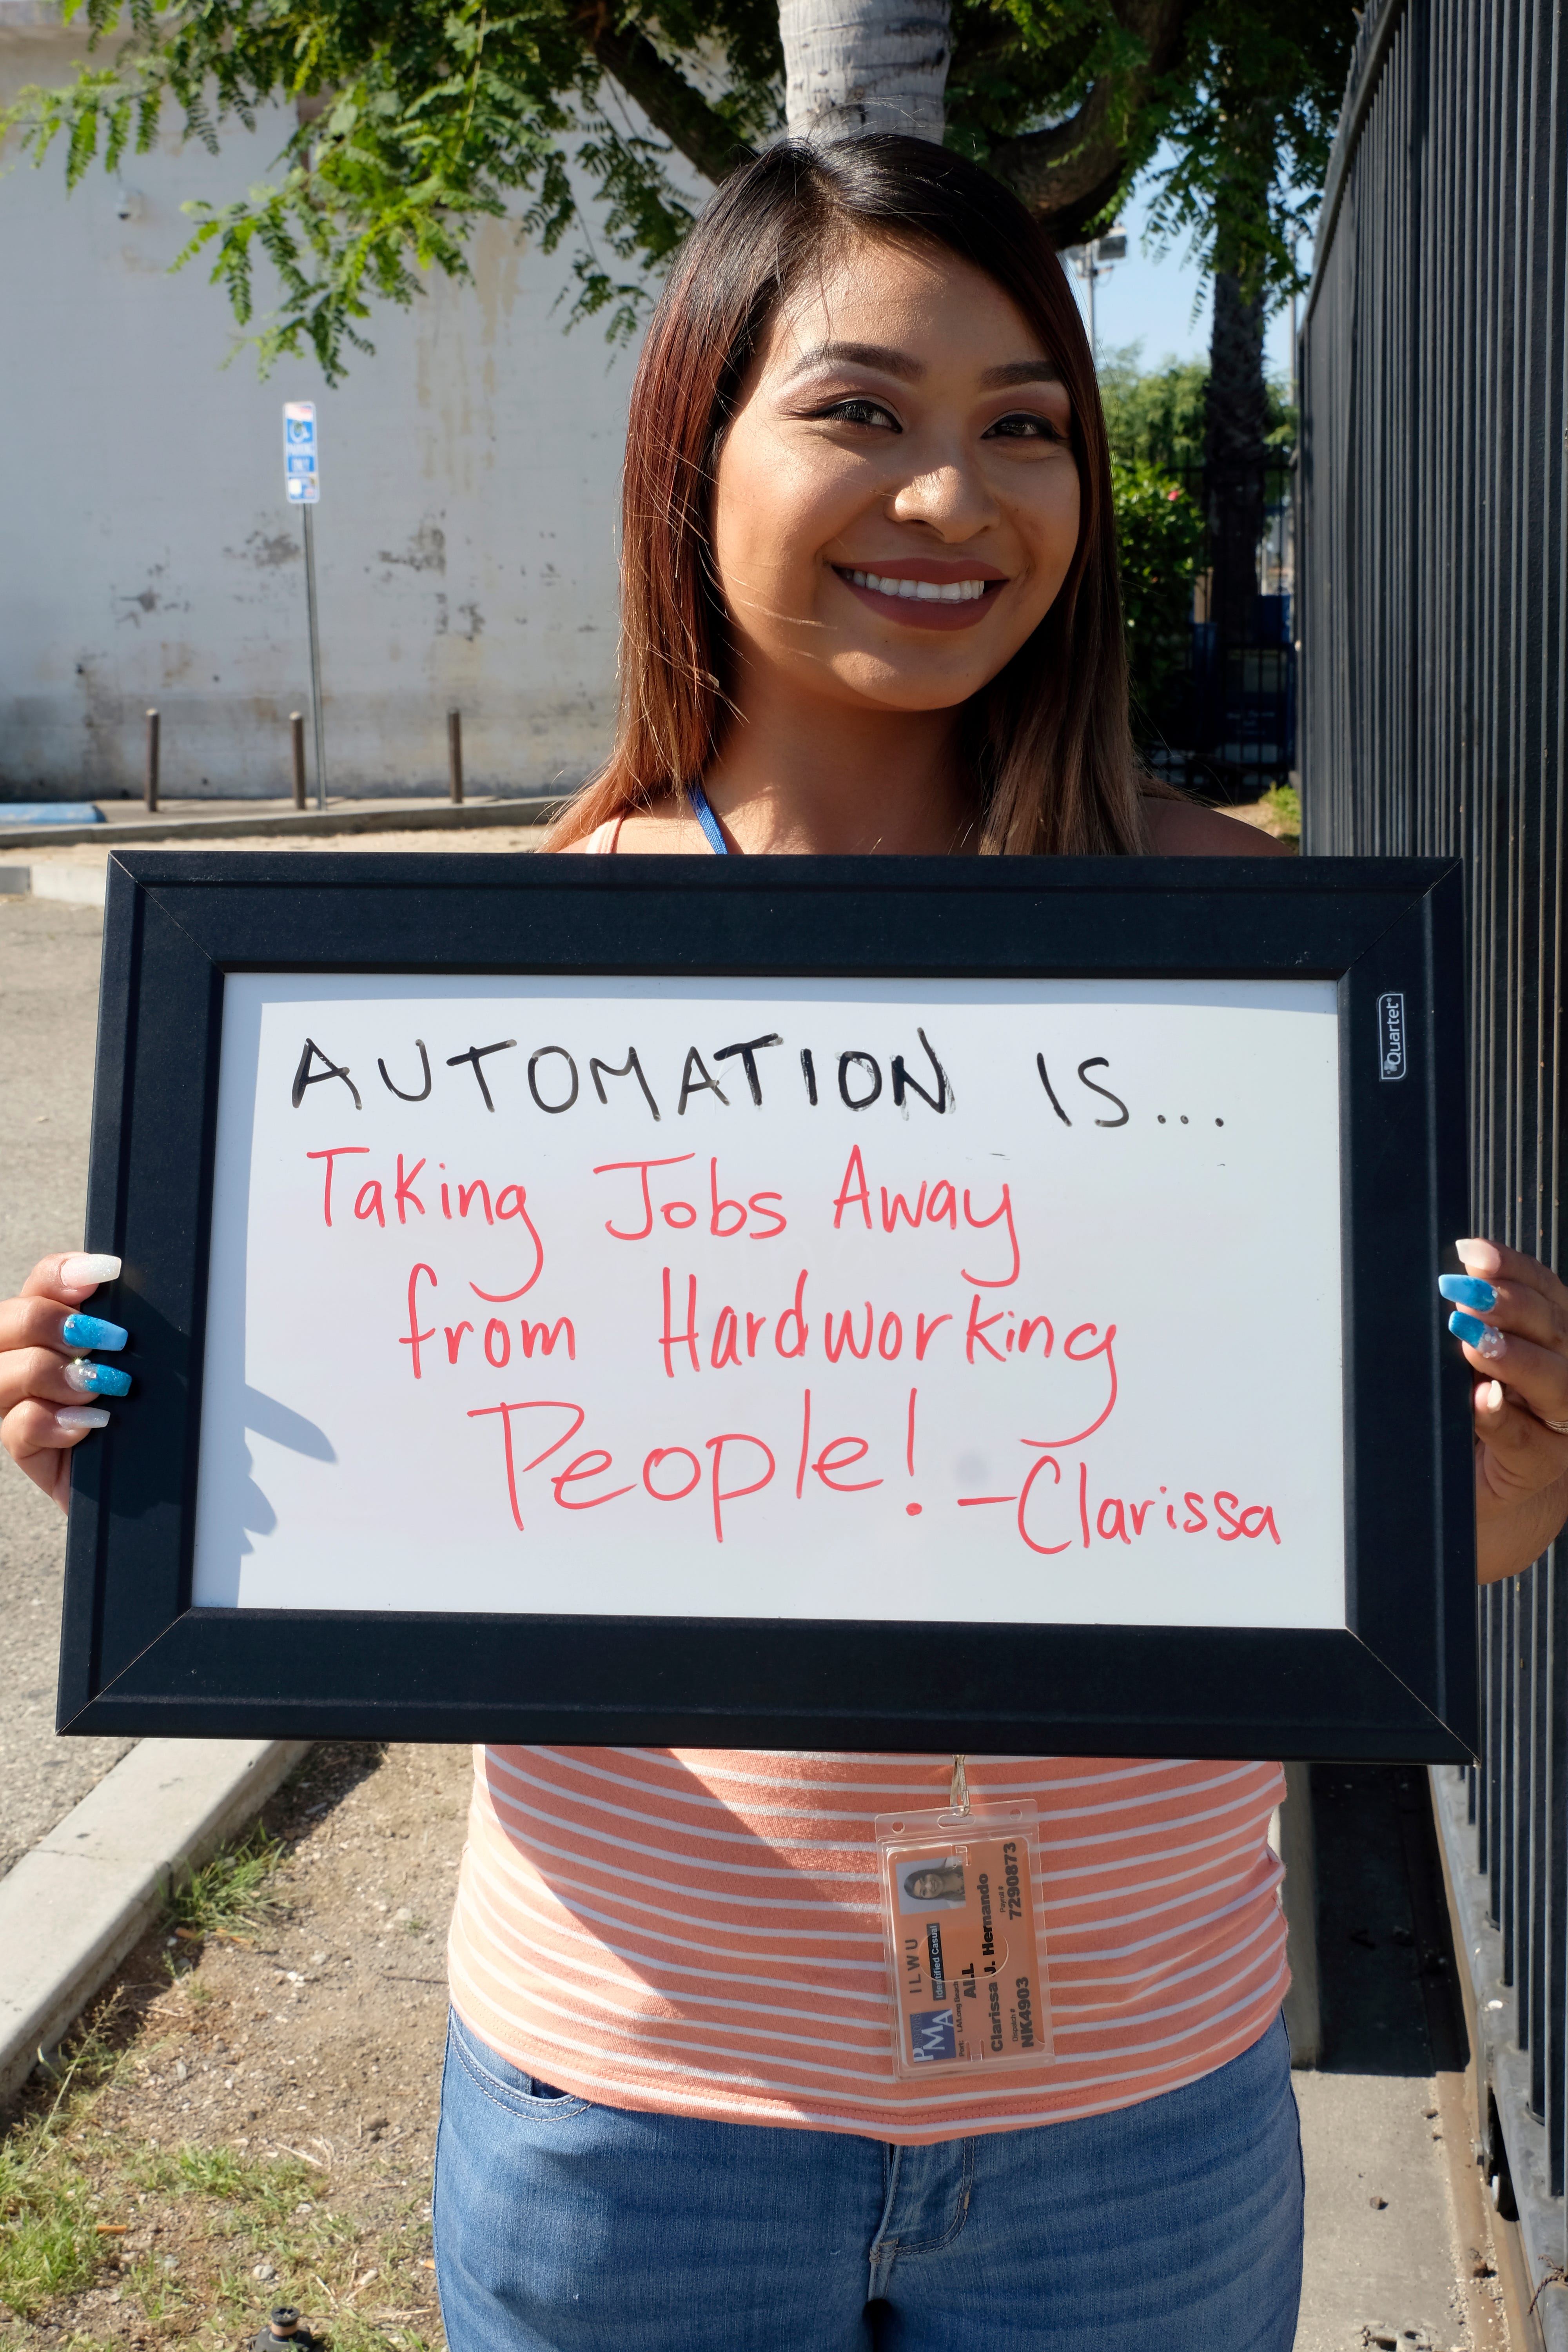 PARKING
ONLY
Quartet
AUTOMATION IS...
Taking Jobs Away
from Hardworking
People! -Clarissa
PMA
ILWU
Identified Casual
Port: LA/Long Beach
ALL
Clarissa J. Hernando
Dispatch # Payroll #
NK4903 7290873